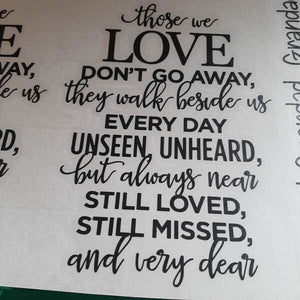 those we
LOVE
DON'T GO AWAY,
they walk beside us
EVERY DAY
UNSEEN, UNHEARD,
but always near
STILL LOVED,
STILL MISSED,
and very dear
E
WAY,
us
RD,
r
Granda